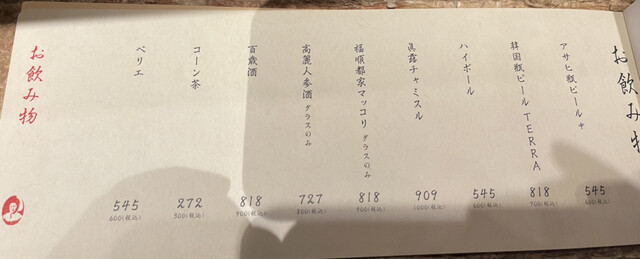 お飲み物
アサヒ瓶ビール
545
600(税込)
韓国瓶ビール TERRA
818
900(税込)
ハイボール
545
600(税込)
眞露チャミスル
909
1000(税込)
福順都家マッコリ グラスのみ
818
900(税込)
高麗人参酒 グラスのみ
727
800(税込)
百歳酒
818
900(税込)
コーン茶
272
300(税込)
ペリエ
545
600(税込)
お飲み物